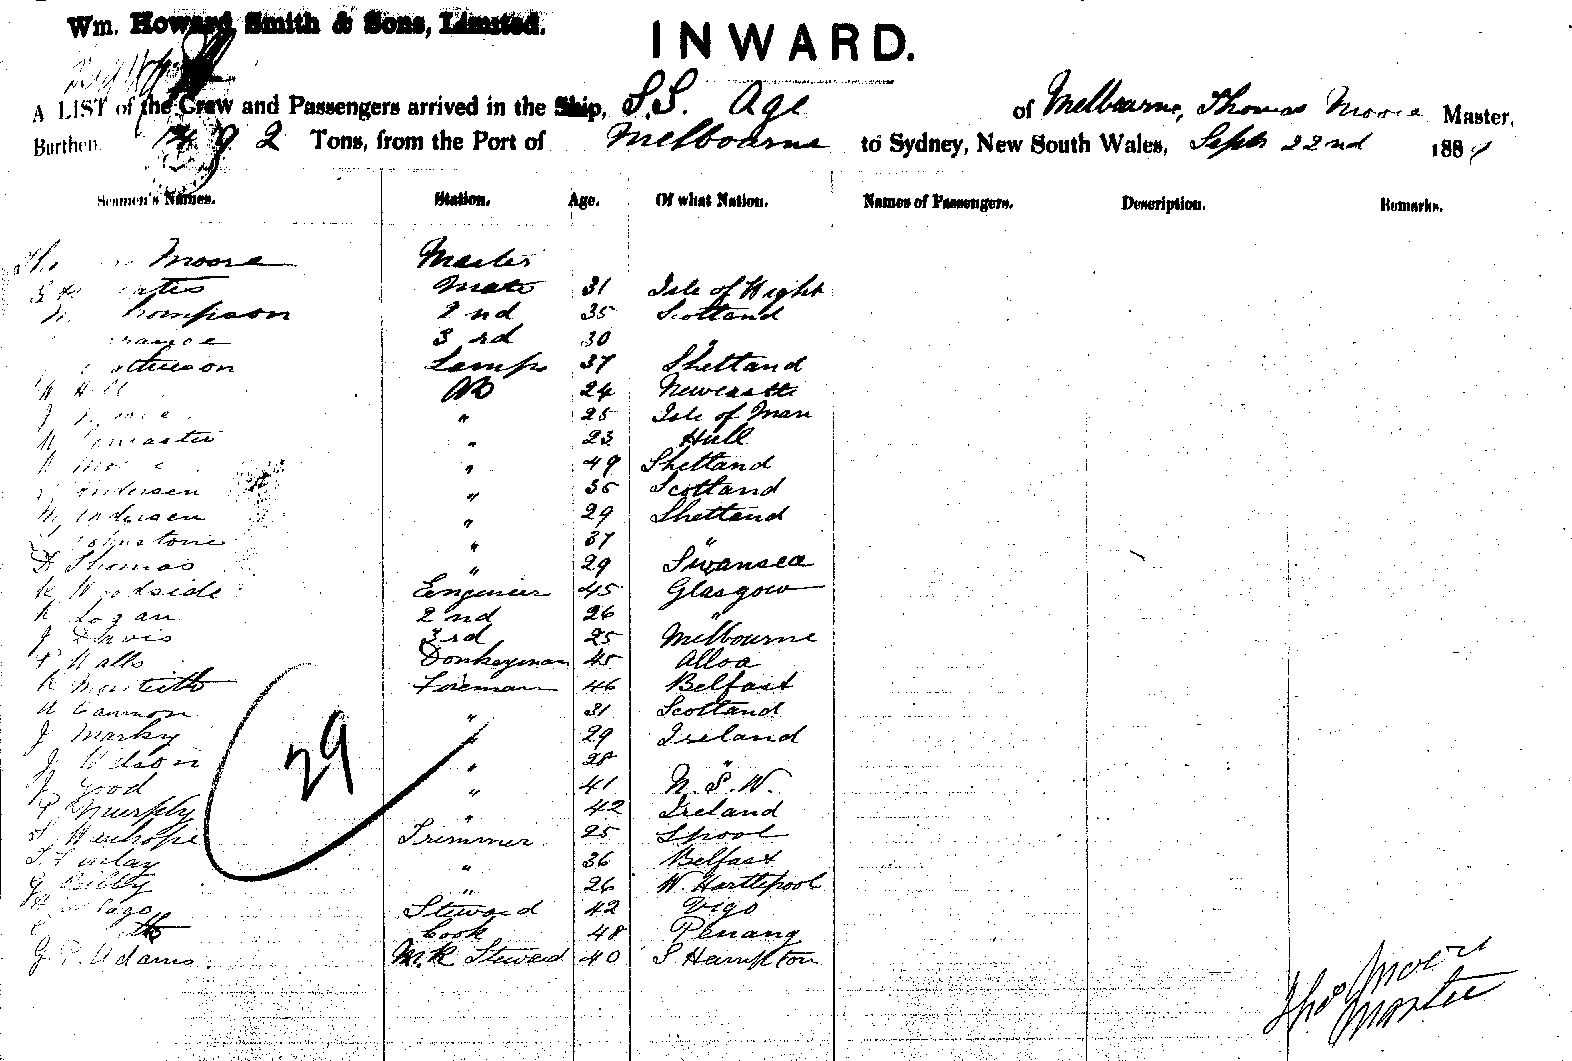 Wm. Howard Smith & Sons, Limited.
INWARD.
A LIST of the Crew and Passengers arrived in the Ship, S.S. Age of Melbourne, Thomas Moore Master,
Burthen 1492 Tons, from the Port of Melbourne to Sydney, New South Wales, Sept 22nd 1889
Seamen's Names. Station. Age. Of what Nation. Names of Passengers. Description. Remarks.
Moore Master
Mate 31 Isle of Wight
2nd 35 Scotland
3rd 30 "
Lamps 37 Shetland
Hill AB 24 Newcastle
" 25 Isle of Man
" 23 Hull
" 49 Shetland
" 35 Scotland
" 29 Shetland
" 37 "
D Thomas " 29 Swansea
R Woodside Engineer 45 Glasgow
R Logan 2nd 26 "
J Davis 3rd 25 Melbourne
P Walls Donkeyman 45 Alloa
R Monteith Fireman 46 Belfast
A Cannon " 31 Scotland
J Marky " 29 Ireland
J Wilson " 28 "
J Good " 41 N.S.W.
P Murphy " 42 Ireland
Trimmer 25 Lpool
T Finlay " 36 Belfast
G " 26 W. Hartlepool
Steward 42 Vigo
Cook 48 Penang
G P Adams M.R Steward 40 S Hampton
29
Thos Moore
Master